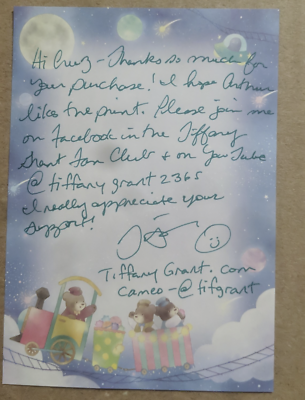 Hi Cruz - Thanks so much for
your purchase! I hope Arthur
likes the print. Please join me
on Facebook in the Tiffany
Grant Fan Club & on YouTube
@tiffanygrant2365
I really appreciate your
support!
Tiffany Grant.com
cameo - @tifgrant